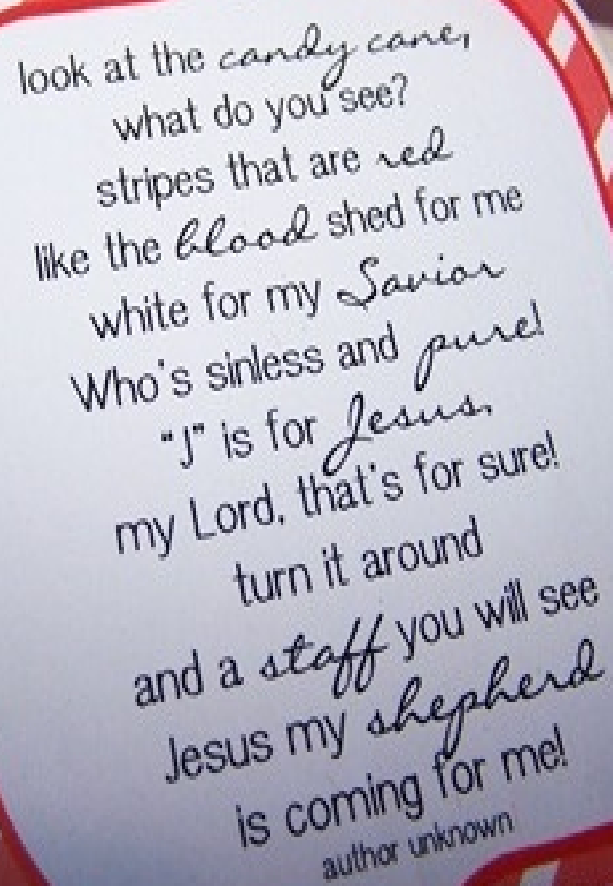 look at the candy cane,
what do you see?
stripes that are red
like the blood shed for me
white for my Savior
Who's sinless and pure!
"J" is for Jesus,
my Lord, that's for sure!
turn it around
and a staff you will see
Jesus my shepherd
is coming for me!
author unknown